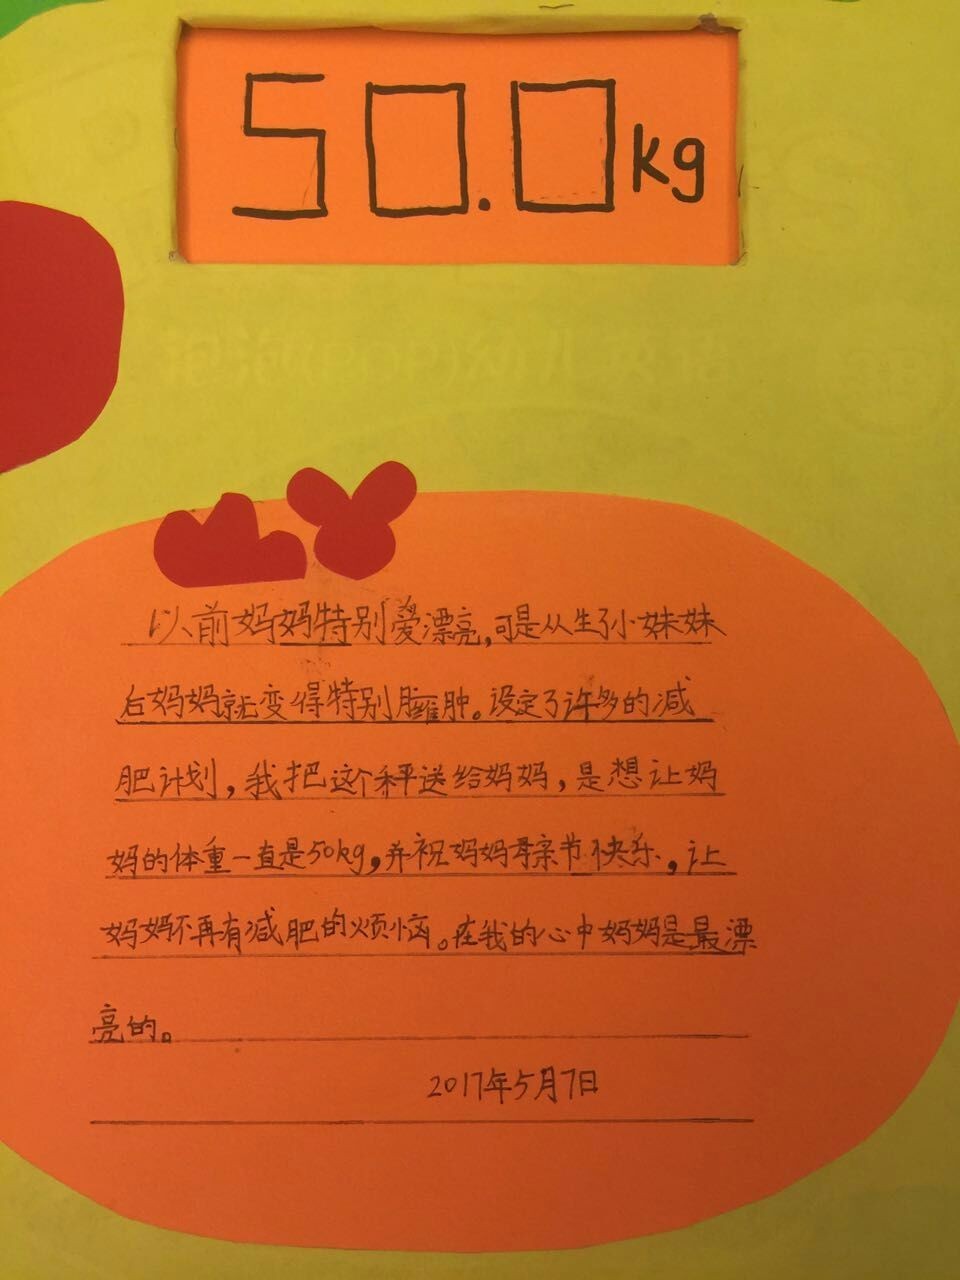 50.0kg
泡泡(POP)幼儿英语
以前妈妈特别爱漂亮,可是从生了小妹妹
后妈妈就变得特别臃肿。设定了许多的减
肥计划,我把这个秤送给妈妈,是想让妈
妈的体重一直是50kg,并祝妈妈母亲节快乐,让
妈妈不再有减肥的烦恼。在我的心中妈妈是最漂
亮的。
2017年5月7日